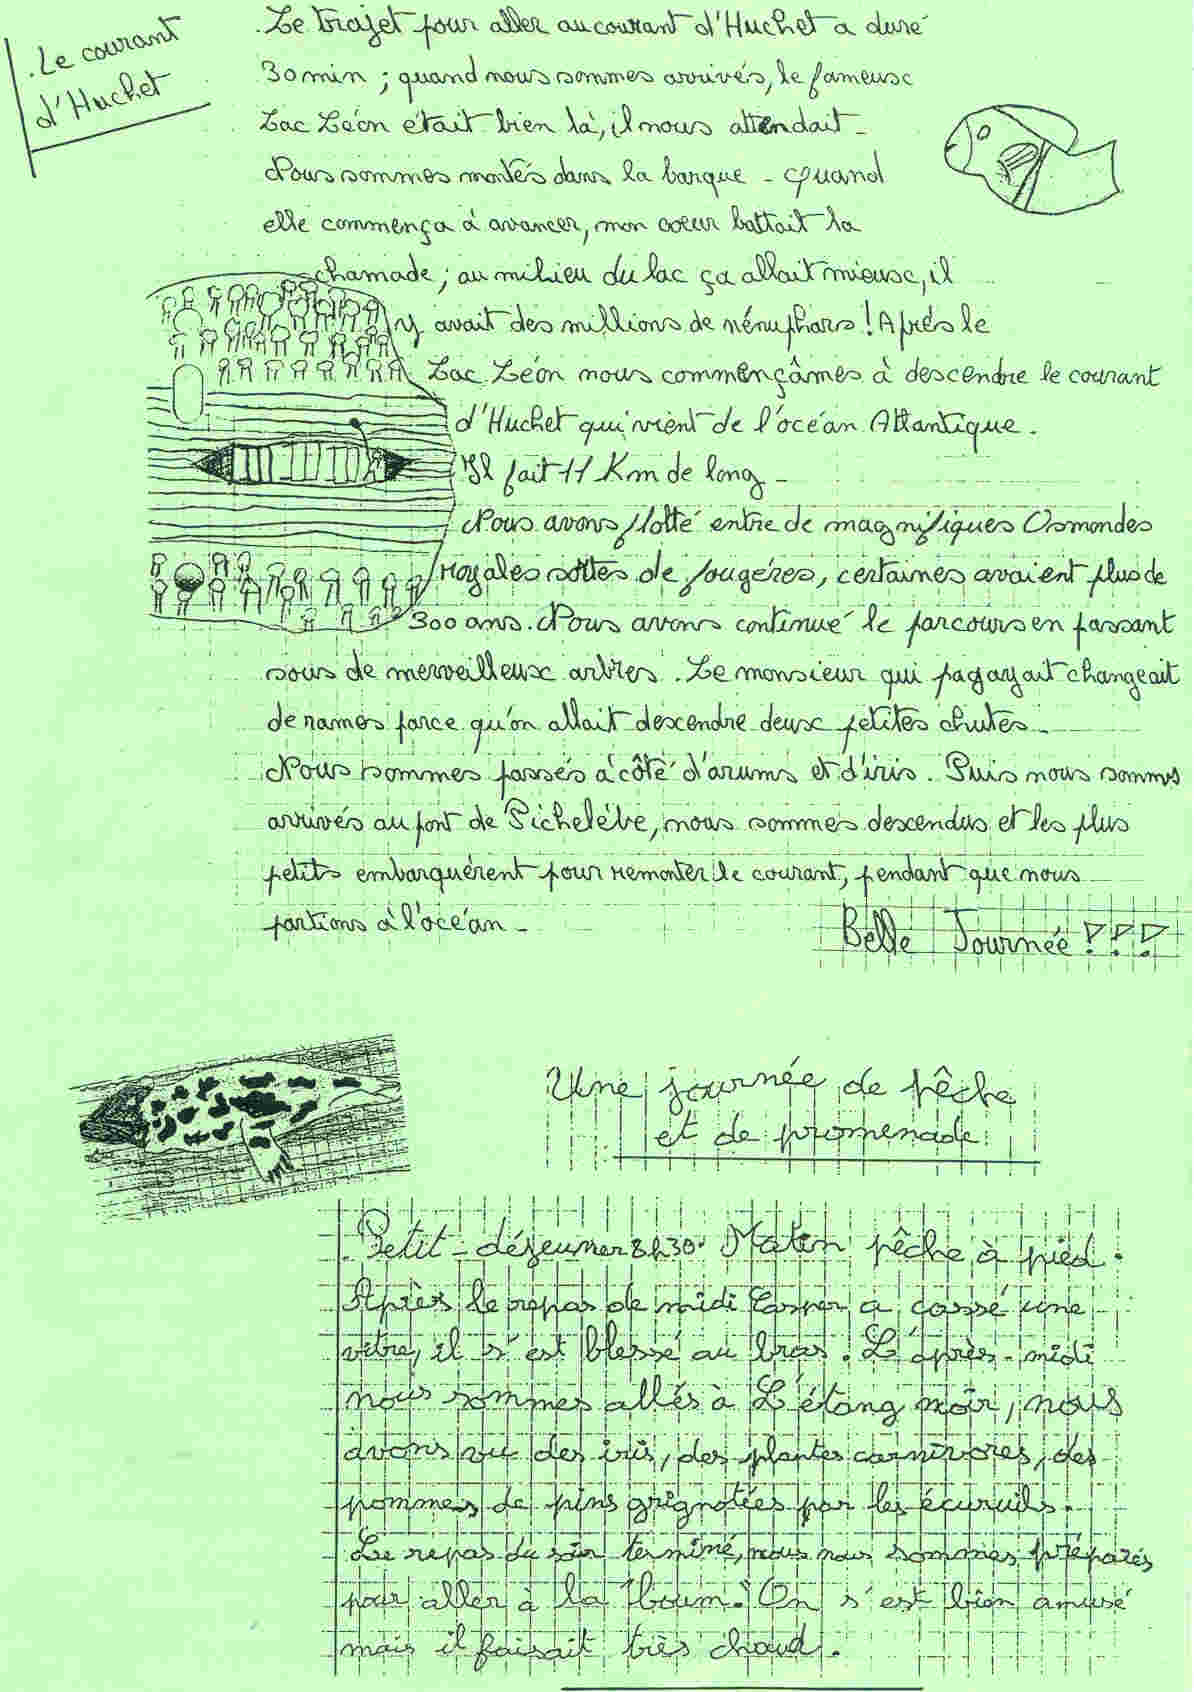 Le courant
d'Huchet
Le trajet pour aller au courant d'Huchet a duré
30 min ; quand nous sommes arrivés, le fameux
Lac Léon était bien là, il nous attendait -
Nous sommes montés dans la barque - Quand
elle commença à avancer, mon coeur battait la
chamade ; au milieu du lac ça allait mieux, il
y avait des millions de nénuphars ! Aprés le
Lac Léon nous commençâmes à descendre le courant
d'Huchet qui vient de l'océan Atlantique.
Il fait 11 Km de long -
Nous avons flotté entre de magnifiques Osmondes
royales sortes de fougéres, certaines avaient plus de
300 ans. Nous avons continué le parcours en passant
sous de merveilleux arbres. Le monsieur qui pagayait changeait
de rames parce qu'on allait descendre deux petites chutes -
Nous sommes passés à côté d'arums et d'iris. Puis nous sommes
arrivés au pont de Pichelébe, nous sommes descendus et les plus
petits embarquérent pour remonter le courant, pendant que nous
partions à l'océan -
Belle Journée !!!
Une journée de pêche
et de promenade
Petit-déjeuner 8h30. Matin pêche à pied.
Après le repas de midi Casper a cassé une
vitre, il s'est blessé au bras. L'après-midi
nous sommes allés à L'étang noir, nous
avons vu des iris, des plantes carnivores, des
pommes de pins grignotées par les écureuils.
Le repas du soir terminé, nous nous sommes préparés
pour aller à la boum. On s'est bien amusé
mais il faisait très chaud.